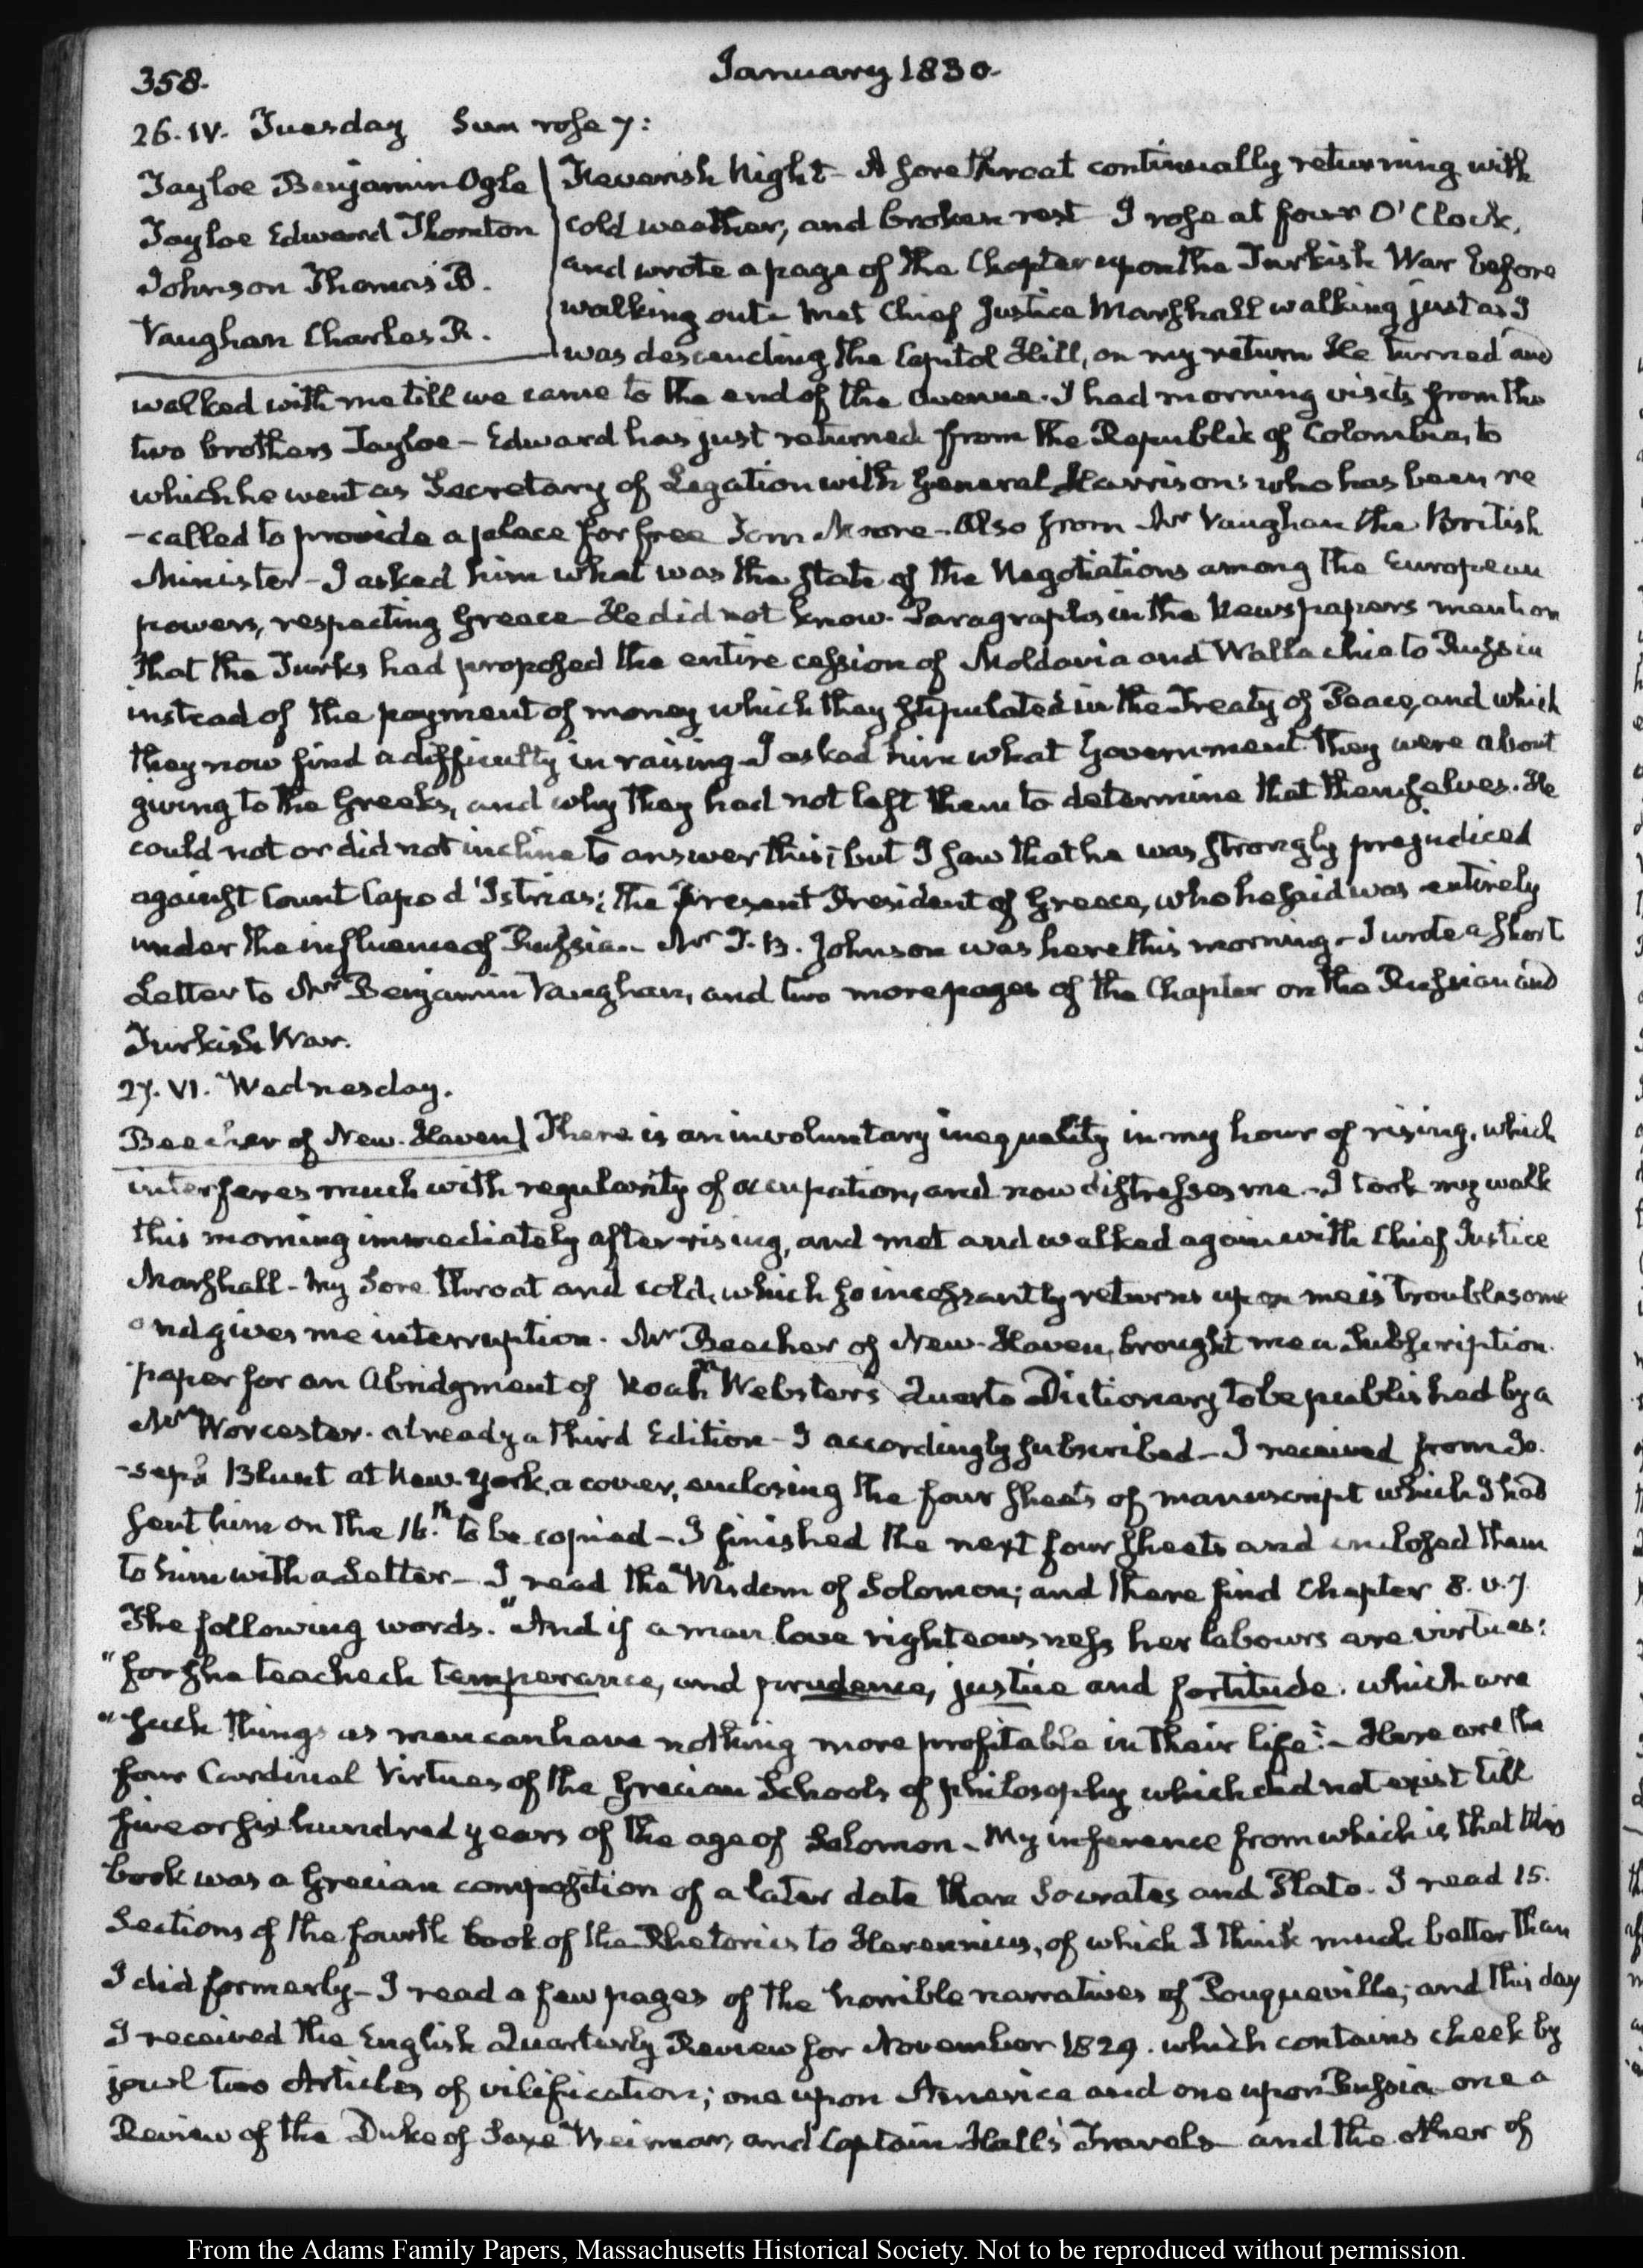 358.
January 1830.
26. IV. Tuesday Sun rose 7:
Tayloe Benjamin Ogle
Tayloe Edward Thornton
Johnson Thomas B.
Vaughan Charles R.
Feverish Night - A sore throat continually returning with
cold weather, and broken rest I rose at four O'Clock,
and wrote a page of the Chapter upon the Turkish War before
walking out - Met Chief Justice Marshall walking just as I
was descending the Capitol Hill, on my return He turned and
walked with me till we came to the end of the avenue. I had morning visits from the
two brothers Tayloe - Edward has just returned from the Republic of Colombia, to
which he went as Secretary of Legation with General Harrison: who has been re
-called to provide a place for free Tom Moore - Also from Mr Vaughan the British
Minister - I asked him what was the state of the Negotiations among the European
powers, respecting Greece - He did not know. Paragraphs in the Newspapers mention
that the Turks had proposed the entire cession of Moldavia and Wallachia to Russia
instead of the payment of money which they stipulated in the Treaty of Peace, and which
they now find a difficulty in raising - I asked him what Government they were about
giving to the Greeks, and why they had not left them to determine that themselves. He
could not or did not incline to answer this; but I saw that he was strongly prejudiced
against Count Capo d'Istrias; the present President of Greece, who he said was entirely
under the influence of Russia. - Mr T. B. Johnson was here this morning - I wrote a short
Letter to Mr Benjamin Vaughan, and two more pages of the Chapter on the Russian and
Turkish War.
27. VI. Wednesday.
Beecher of New-Haven
There is an involuntary inequality in my hour of rising, which
interferes much with regularity of occupation, and now distresses me - I took my walk
this morning immediately after rising, and met and walked again with Chief Justice
Marshall - My Sore throat and cold, which so incessantly returns upon me is troublesome
and gives me interruption. Mr Beecher of New-Haven, brought me a Subscription
paper for an Abridgment of Noah Webster's Quarto Dictionary to be published by a
Mr Worcester. already a third Edition - I accordingly subscribed - I received from Jo
-seph Blunt at New-York, a cover, enclosing the four sheets of manuscript which I had
sent him on the 16.th to be copied - I finished the next four sheets and inclosed them
to him with a Letter - I read the Wisdom of Solomon; and there find Chapter 8. v. 7
The following words. "And if a man love righteousness her labours are virtues:
"for she teacheth temperance, and prudence, justice and fortitude. which are
"such things as men can have nothing more profitable in their life". - Here are the
four Cardinal Virtues of the Grecian Schools of philosophy which did not exist till
five or six hundred years of the age of Solomon - My inference from which is that this
book was a Grecian composition of a later date than Socrates and Plato. I read 15.
Sections of the fourth book of the Rhetorics to Herennius, of which I think much better than
I did formerly - I read a few pages of the horrible narratives of Pouqueville; and this day
I received the English Quarterly Review for November 1829. which contains cheek by
jowl two Articles of vilification; one upon America and one upon Russia - one a
Review of the Duke of Saxe Weimar, and Captain Hall's Travels - and the other of
From the Adams Family Papers, Massachusetts Historical Society. Not to be reproduced without permission.